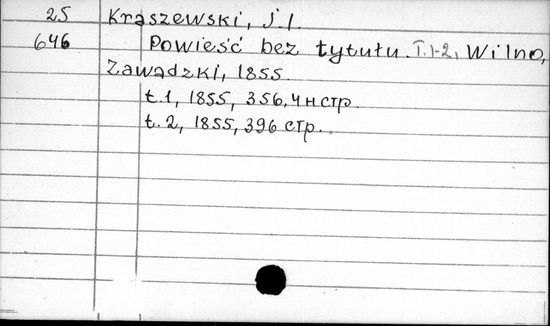 25 Kraszewski, J. I.
646 Powieść bez tytułu. T. 1-2, Wilno,
Zawadzki, 1855.
t. 1, 1855, 356, 4 н стр.
t. 2, 1855, 396 стр.